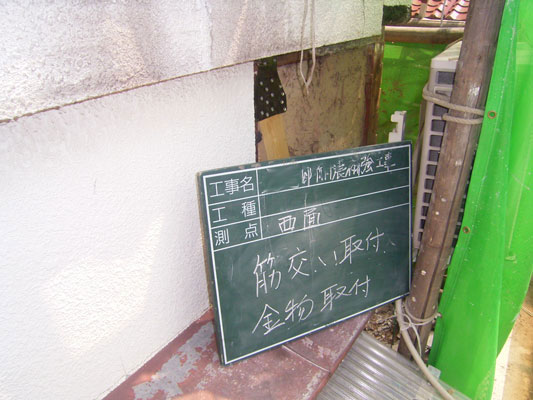 工事名 邸耐震補強工事
工種
測点 西面
筋交い取付、
金物取付